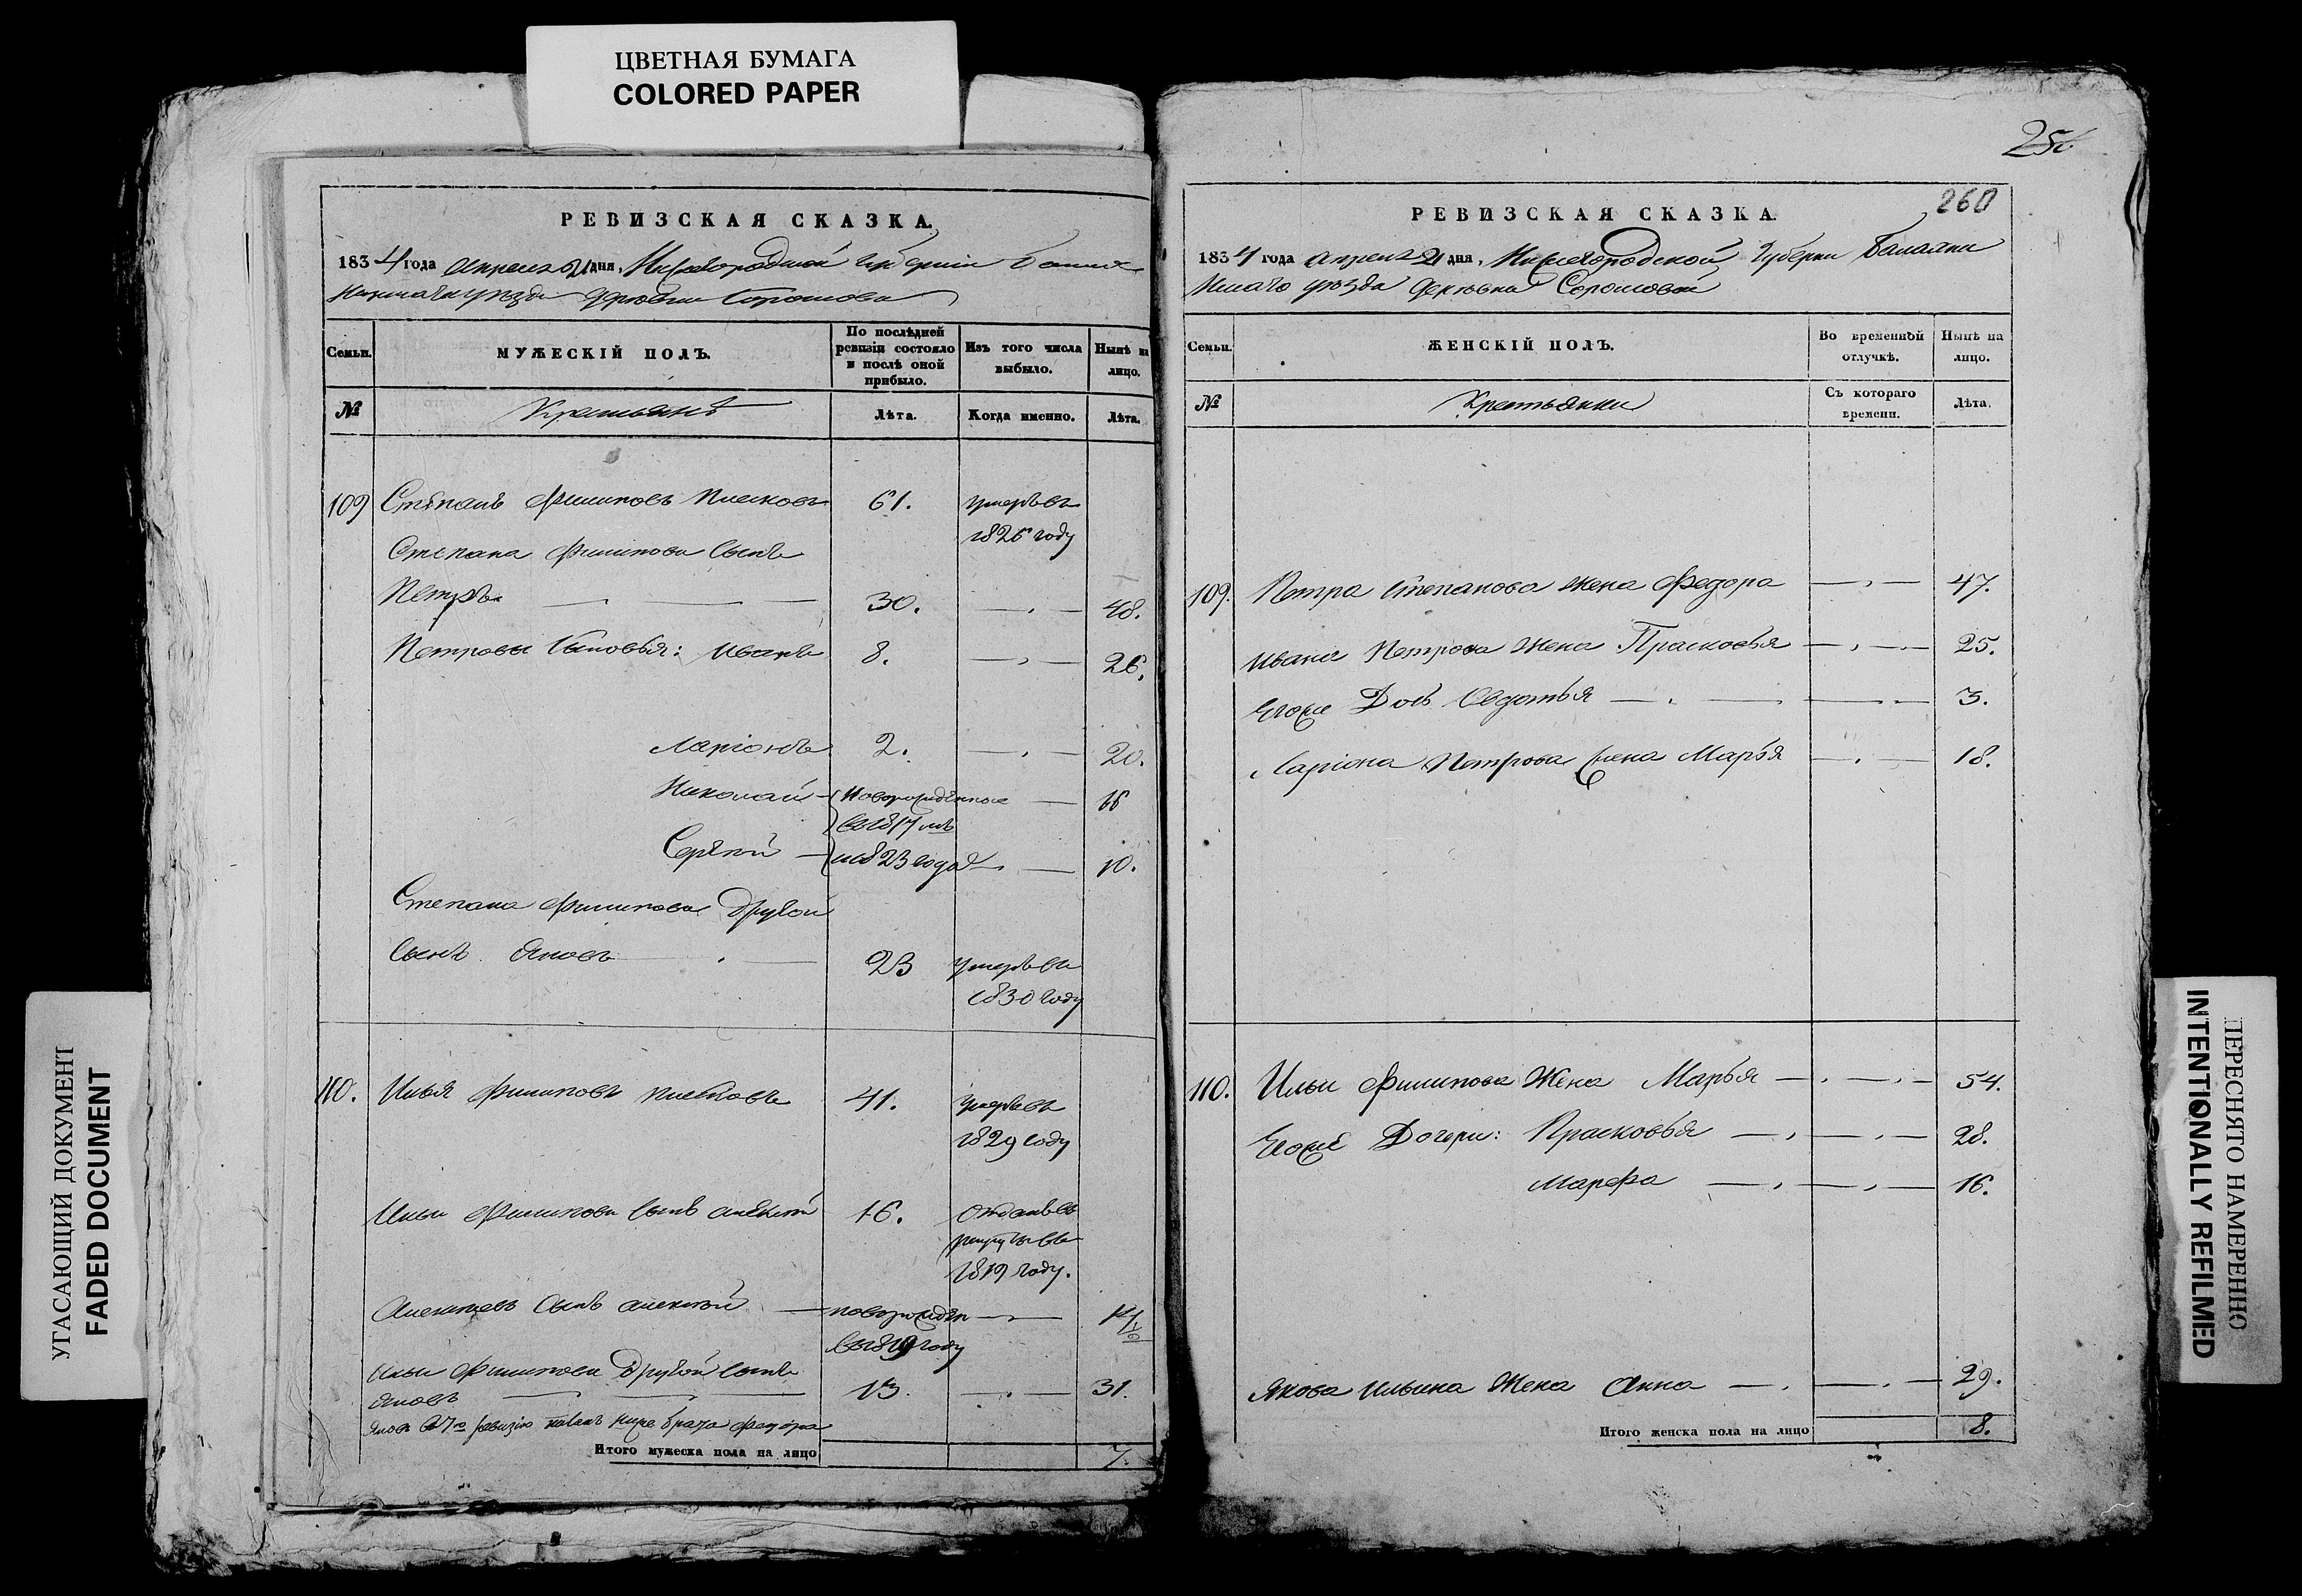 ЦВЕТНАЯ БУМАГА
COLORED PAPER
УГАСАЮЩИЙ ДОКУМЕНТ
FADED DOCUMENT
РЕВИЗСКАЯ СКАЗКА.
1834 года апреля 21 дня, Нижегородской губернии
уезда деревни
Семьи.
МУЖЕСКІЙ ПОЛЪ.
По послѣдней ревизіи состояло и послѣ оной прибыло.
Изъ того числа выбыло.
Нынѣ на лицо.
№
Крестьянѣ
Лѣта.
Когда именно.
Лѣта.
109 Степанъ Филиповъ 61. умеръ въ
1826 году
Степана Филипова сынъ
Петръ 30. 48.
Петровы сыновья: Иванъ 8. 26.
Ларіонъ 2. 20.
Николай новорожденные 16
въ 1817 мъ
Сергѣй и 1823 годах 10.
Степана Филипова другой
сынъ Яковъ 23 умеръ въ
1830 году
110. Илья Филиповъ 41. умеръ въ
1829 году
Ильи Филипова сынъ Алексѣй 16. отданъ въ
рекруты въ
1819 году.
Алексѣевъ сынъ Алексѣй новорожден
въ 1819 году
Ильи Филипова другой сынъ
Яковъ 13. 31.
Яковъ въ 7ю ревизію брата Федора
Итого мужеска пола на лицо 7.
256
260
РЕВИЗСКАЯ СКАЗКА.
1834 года апреля 21 дня, Нижегородской Губерни Балахни
нскаго уѣзда деревни Сормовой
Семьи.
ЖЕНСКІЙ ПОЛЪ.
Во временной отлучкѣ.
Нынѣ на лицо.
№
Крестьянки
Съ котораго времени.
Лѣта.
109. Петра Степанова жена Федора 47.
Ивана Петрова жена Прасковья 25.
Егоже Дочь Овдотья 3.
Ларіона Петрова жена Марья 18.
110. Ильи Филипова Жена Марья 54.
Егоже Дочери: Прасковья 28.
Марфа 16.
Якова Ильина Жена Анна 29.
Итого женска пола на лицо 8.
ПЕРЕСНЯТО НАМЕРЕННО
INTENTIONALLY REFILMED